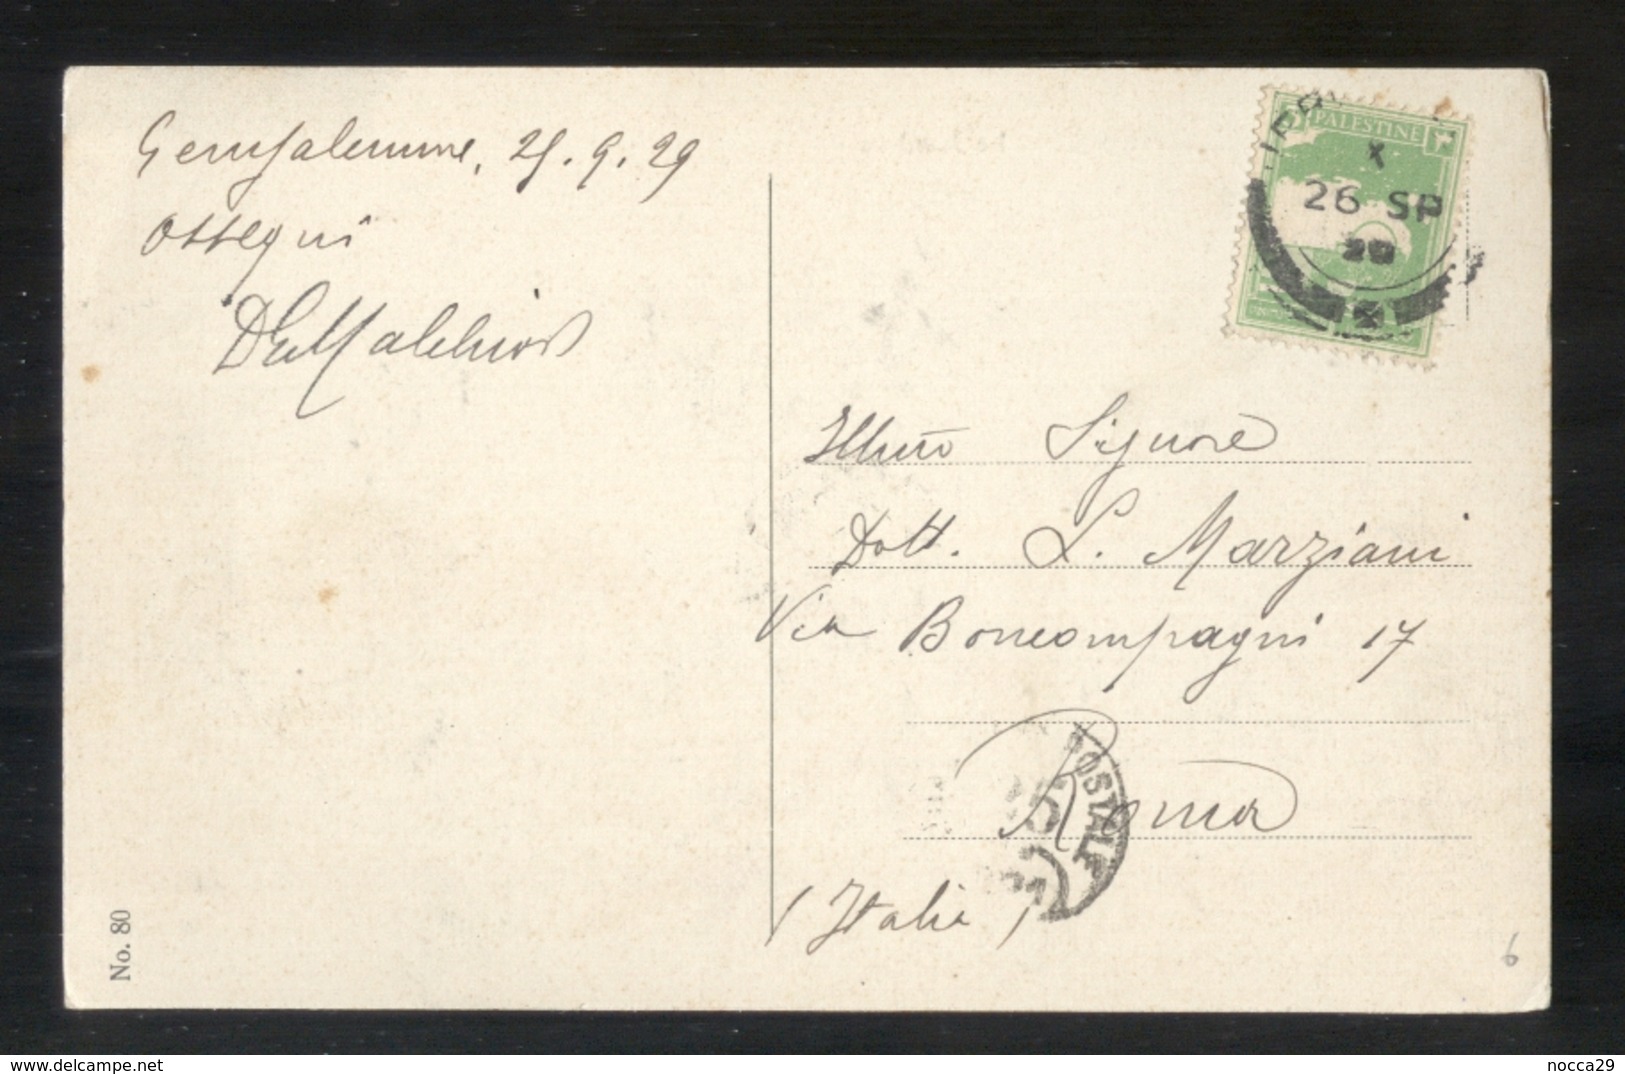 Gerusalemme, 25.9.29
ossequi
PALESTINE
X
26 SP
29
Illmo Signore
Dott. L. Marziani
Via Boncompagni 17
Roma
(Italia)
POSTALE
No. 80
6
delcampe.net
nocca29